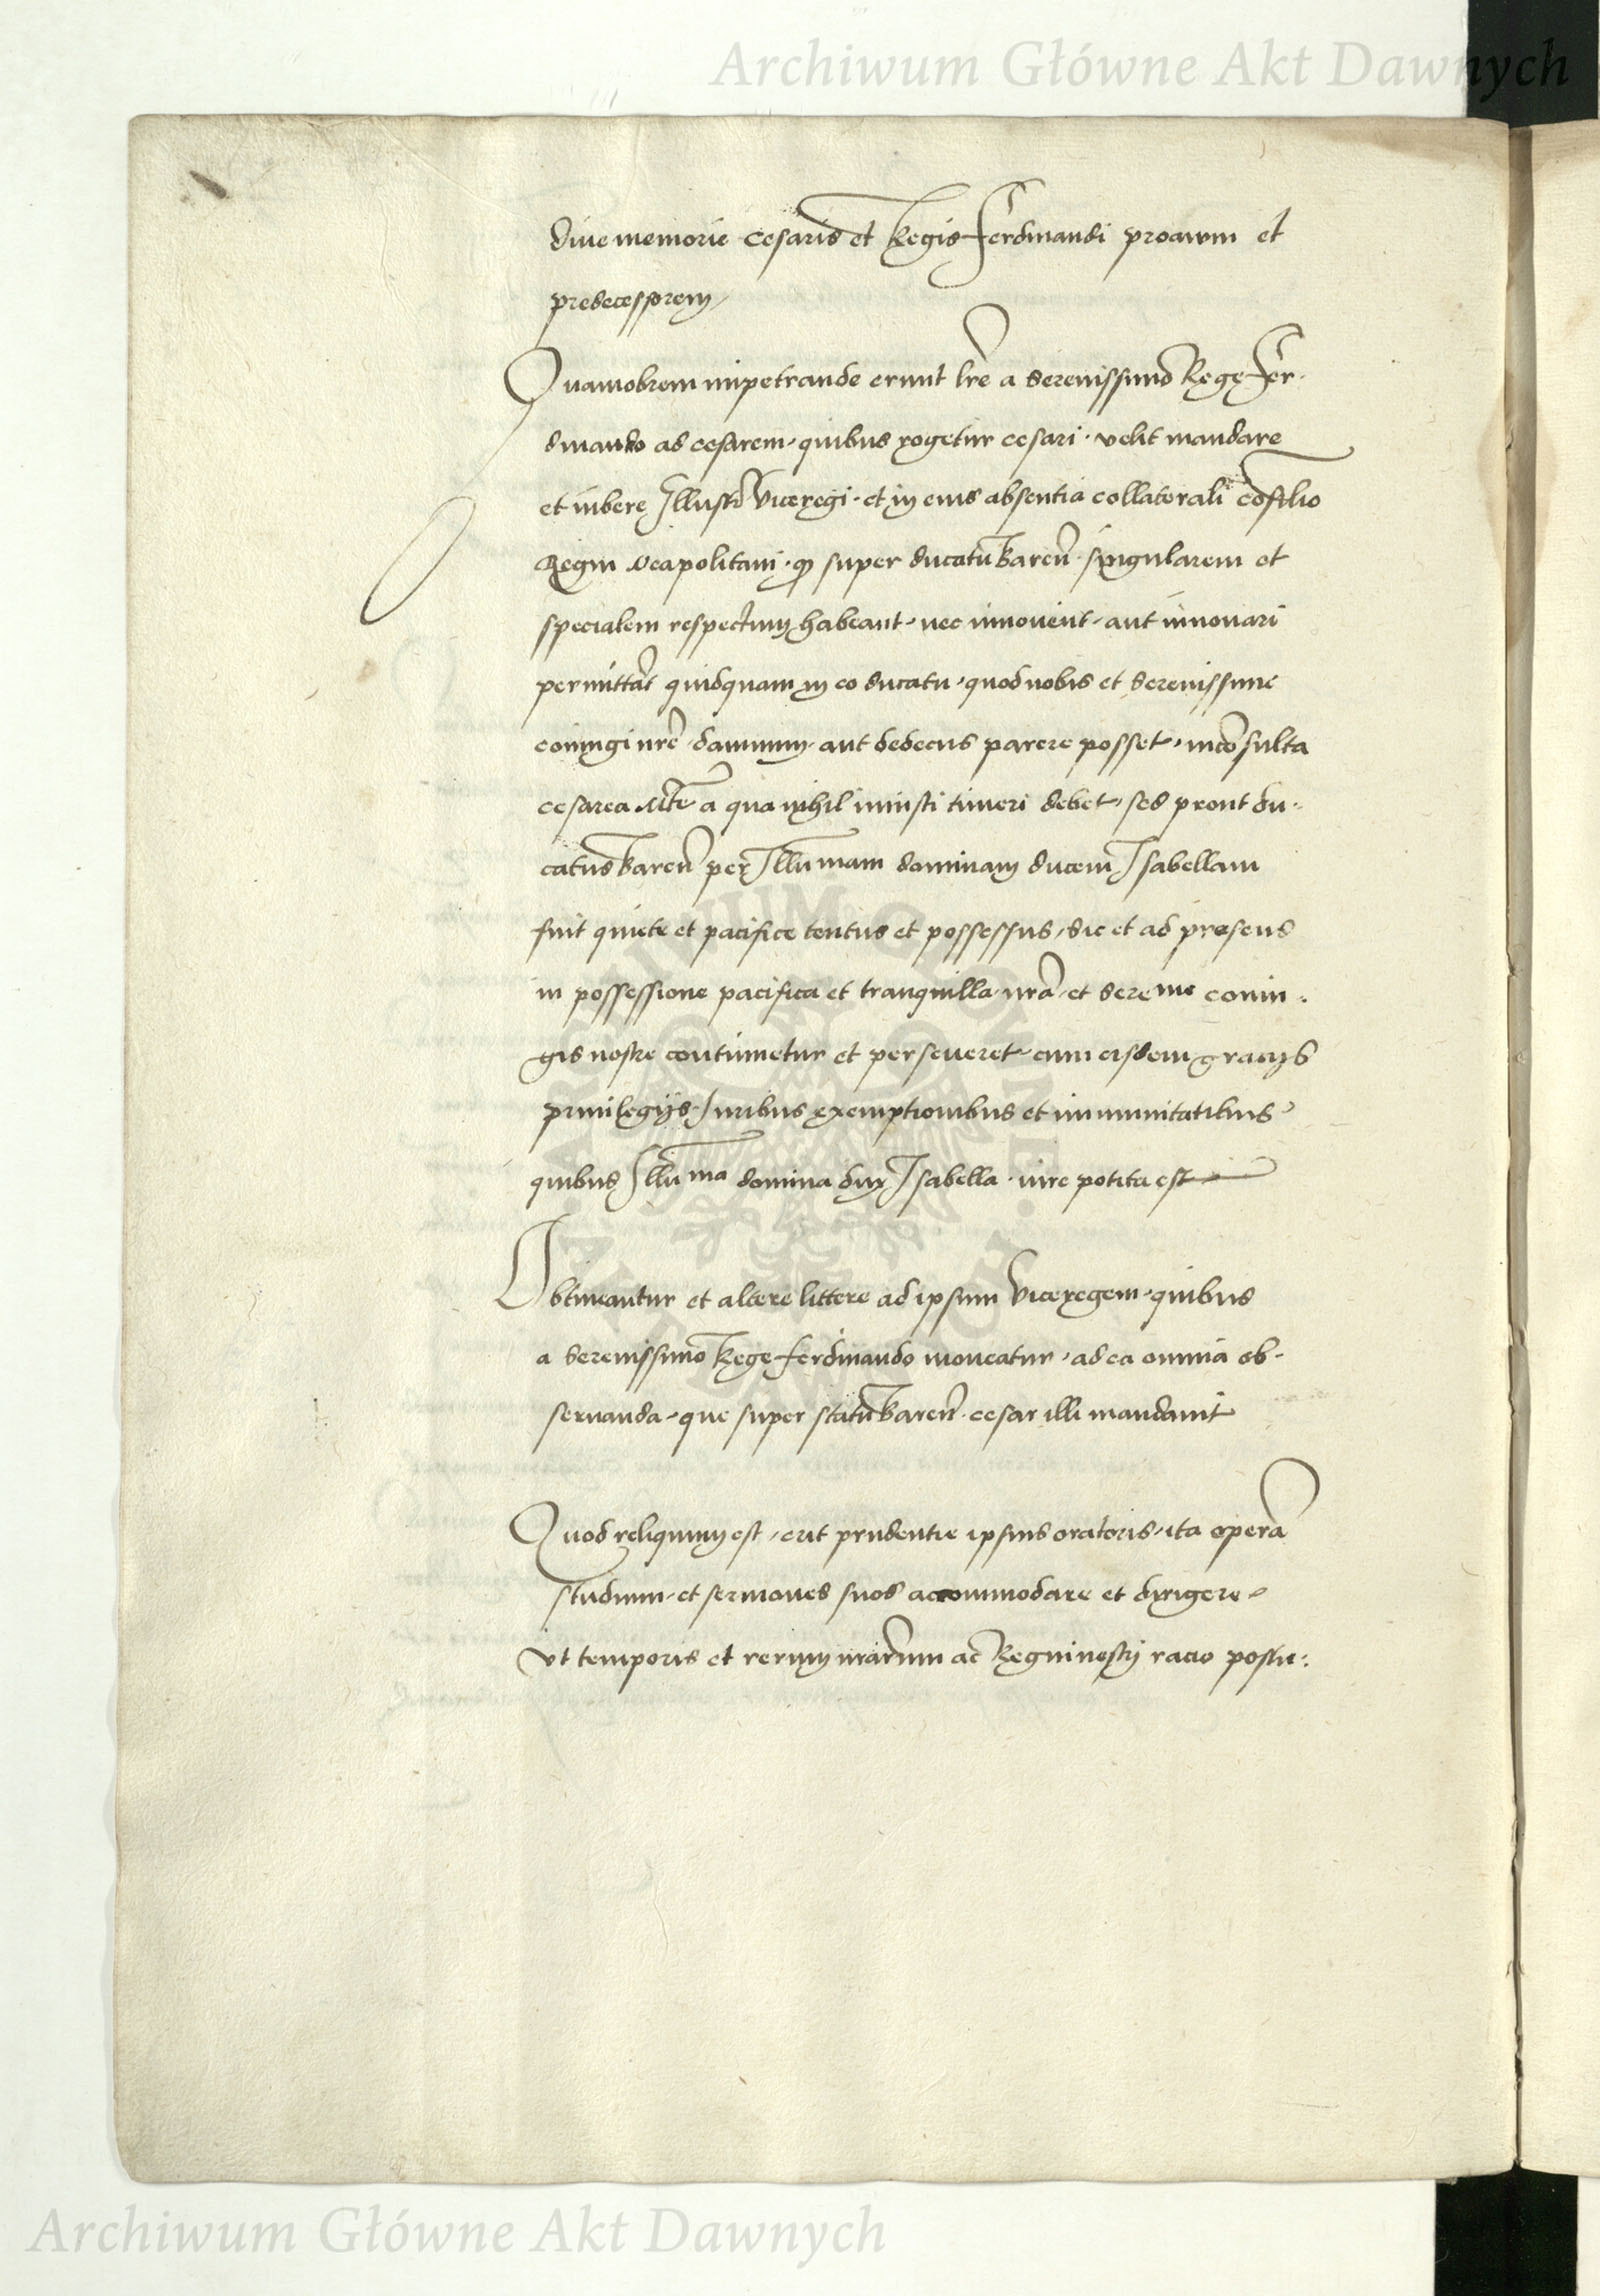 Archiwum Główne Akt Dawnych
diue memorie Cesaris et Regis Ferdinandi proauum et
predecessorem
Quamobrem impetrande erunt lre a Serenissimo Rege Fer-
dinando ad cesarem, quibus rogetur cesar, velit mandare
et iubere Illustri Viceregi, et in eius absentia collaterali cosilio
Regni Neapolitani, qd super ducatu Baren singularem et
specialem respectum habeant, nec innouent, aut innouari
permittat quidquam in eo ducatu, quod nobis et Serenissime
coniugi nre damnum aut dedecus parere posset, incosulta
cesarea Mte a qua nihil iniusti timeri debet, sed prout du-
catus Baren per Illumam dominam ducem Isabellam
fuit quiete et pacifice tentus et possessus, sic et ad presens
in possessione pacifica et tranquilla nra et Sereme coniu-
gis nostre continuetur et perseueret, cum eisdem gracijs
priuilegijs, Iuribus exemptionibus et immunitatibus
quibus Illuma domina dux Isabella iure potita est
Obtineantur et altere littere ad ipsum Viceregem, quibus
a Serenissimo Rege Ferdinando moneatur, ad ea omnia ob-
seruanda, que super statu Baren cesar illi mandauit
Quod reliquum est, erit prudentie ipsius oratoris, ita opera
studium, et sermones suos accommodare et dirigere
vt temporis et rerum nrarum ac Regni nostri racio postu-
Archiwum Główne Akt Dawnych